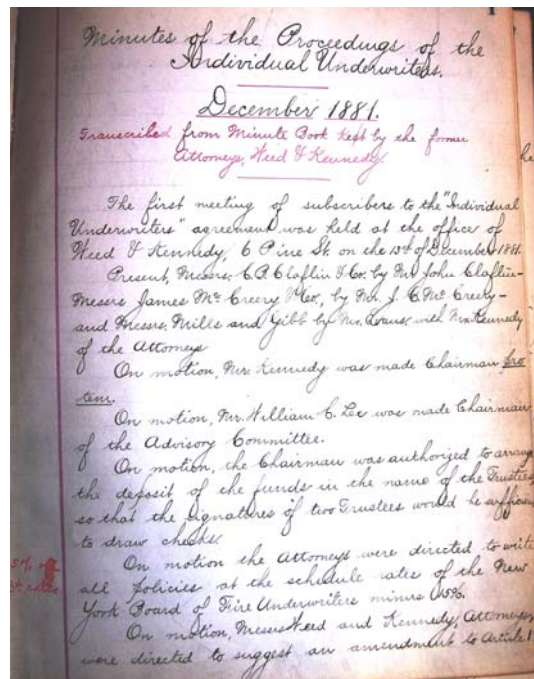 1
Minutes of the Proceedings of the
Individual Underwriters.
December 1881.
Transcribed from Minute Book kept by the former
Attorneys, Weed & Kennedy.
The first meeting of subscribers to the "Individual
Underwriters" agreement was held at the office of
Weed & Kennedy, 6 Pine St. on the 13th of December 1881.
Present, Messrs. Claflin & Co. by Mr. John Claflin-
Messrs James McCreery & Co., by Mr. J. C. McCreery-
and Messrs. Mills and Gibb by Mr. Evans, with Mr. Kennedy
of the Attorneys
On motion, Mr. Kennedy was made Chairman pro
tem.
On motion, Mr. William C. Lee was made Chairman
of the Advisory Committee.
On motion, the Chairman was authorized to arrange
the deposit of the funds in the name of the Trustees,
so that the signatures of two Trustees would be sufficient
to draw checks.
On motion the Attorneys were directed to write
all policies at the schedule rates of the New
York Board of Fire Underwriters minus 15%.
On motion, Messrs Weed and Kennedy, Attorneys,
were directed to suggest an amendment to Article 1